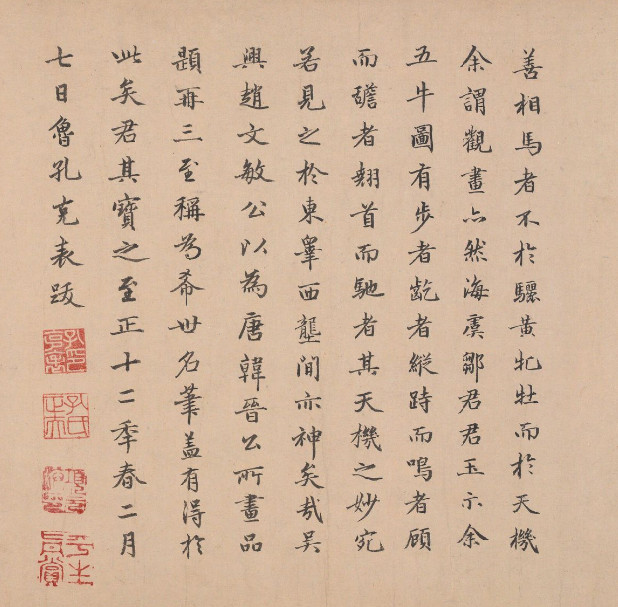 善相馬者不於驪黃牝牡而於天機
余謂觀畫亦然海虞鄒君君玉示余
五牛圖有步者齕者縱跱而鳴者顧
而䑛者翹首而馳者其天機之妙宛
若見之於東皋西壟間亦神矣哉吴
興趙文敏公以為唐韓晉公所畫品
題再三至稱為希世名筆蓋有得於
此矣君其寶之至正十二年春二月
七日魯孔克表跋